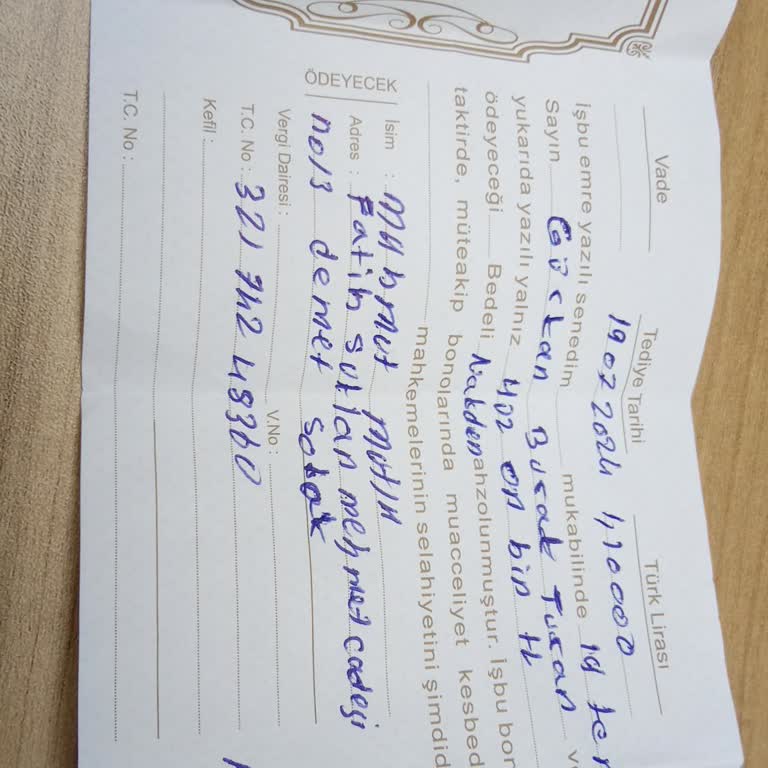 Vade Tediye Tarihi Türk Lirası
19 02 2024 110000
İşbu emre yazılı senedim mukabilinde 19
Sayın Gürkan Burak Turan
yukarıda yazılı yalnız yüz on bin tl
ödeyeceği Bedeli Nakden ahzolunmuştur. İşbu bon
taktirde, müteakip bonolarında muacceliyet kesbed
mahkemelerinin selahiyetini şimdid
ÖDEYECEK
İsim : Mahmut
Adres : Fatih sultan mehmet cadesi
no 13 demet sokak
Vergi Dairesi : V.No :
T.C. No : 321 742 48360
Kefil :
T.C. No :